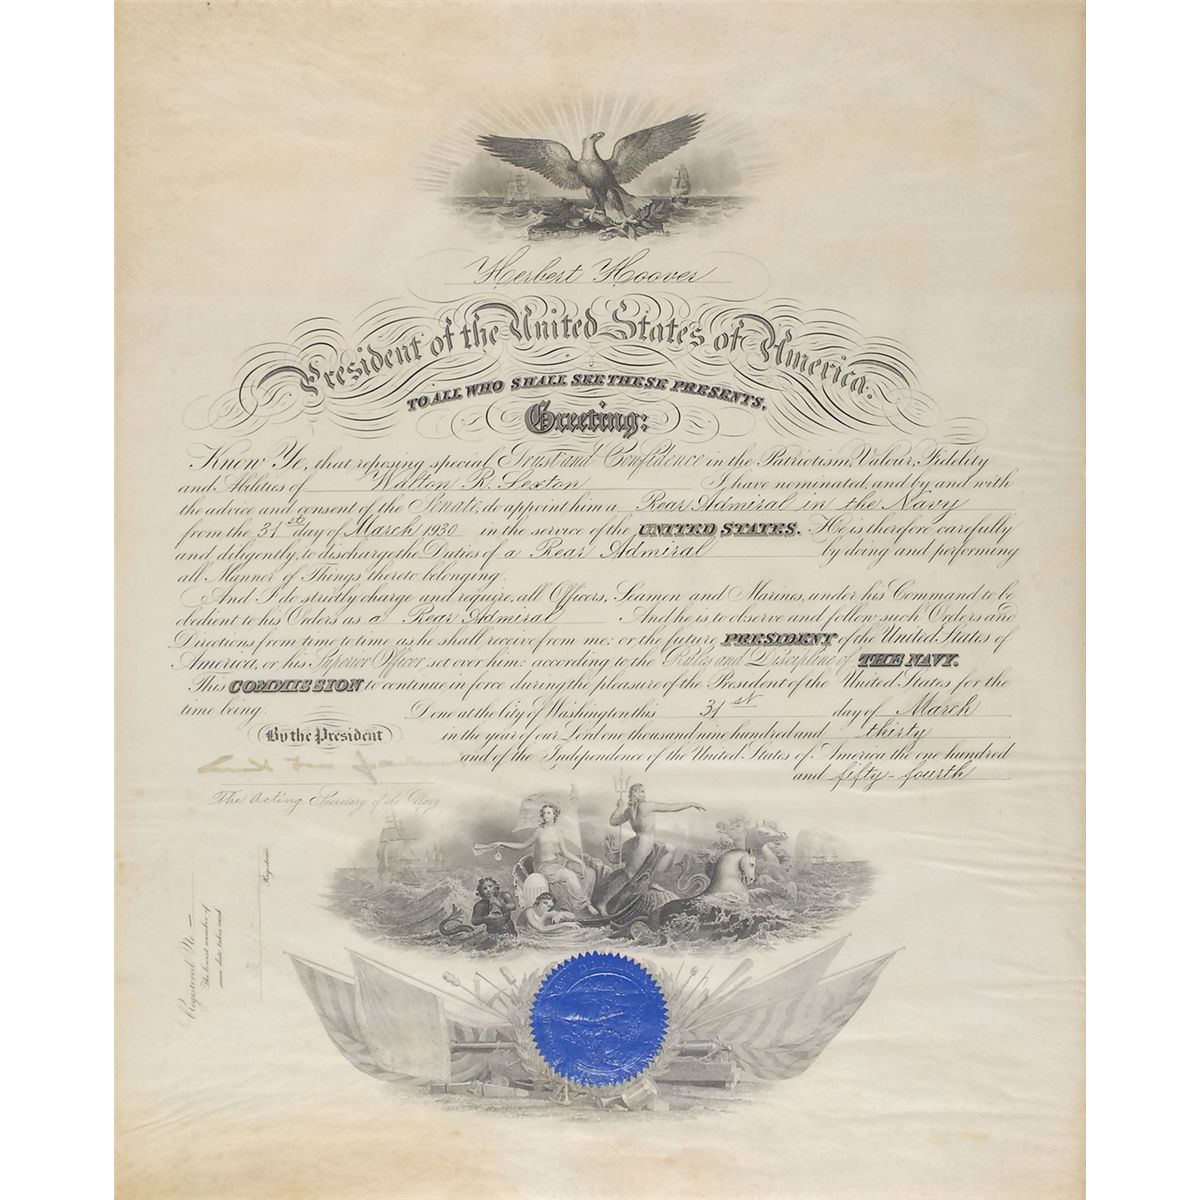 Herbert Hoover
President of the United States of America.
TO ALL WHO SHALL SEE THESE PRESENTS,
Greeting:
Know Ye, that reposing special Trust and Confidence in the Patriotism, Valour, Fidelity
and Abilities of Walton R. Sexton I have nominated, and by and with
the advice and consent of the Senate, do appoint him a Rear Admiral in the Navy
from the 31st day of March 1930 in the service of the UNITED STATES. He is therefore carefully
and diligently, to discharge the Duties of a Rear Admiral by doing and performing
all Manner of Things thereto belonging.
And I do strictly charge and require, all Officers, Seamen and Marines, under his Command to be
obedient to his Orders as a Rear Admiral And he is to observe and follow such Orders and
Directions from time to time as he shall receive from me; or the future PRESIDENT of the United States of
America, or his Superior Officer, set over him: according to the Rules and Discipline of THE NAVY.
This COMMISSION to continue in force during the pleasure of the President of the United States for the
time being.
Done at the City of Washington this 31st day of March
By the President
in the year of our Lord one thousand nine hundred and thirty
and of the Independence of the United States of America the one hundred
and fifty-fourth
The Acting Secretary of the Navy
Registered No
The lowest number of
same date takes rank
Register